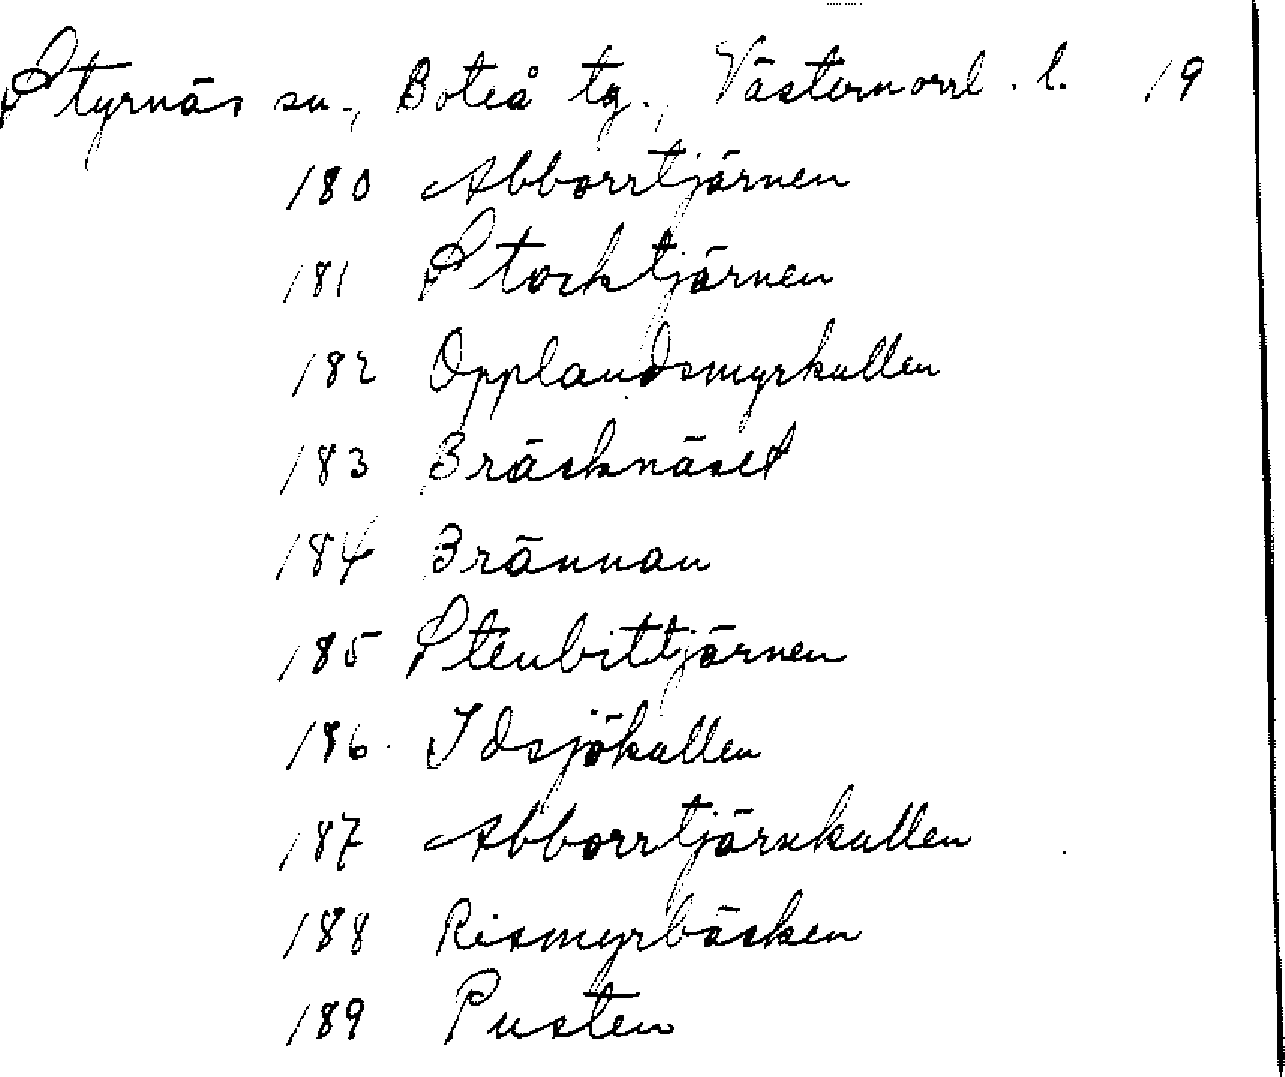 Styrnäs sn., Boteå tg., Västernorrl. l. 19
180 Abborrtjärnen
181 Stocktjärnen
182 Opplandsmyrkullen
183 Bräcknäset
184 Brännan
185 Stenbittjärnen
186 Idsjökullen
187 Abborrtjärnkullen
188 Rismyrbäcken
189 Pusten